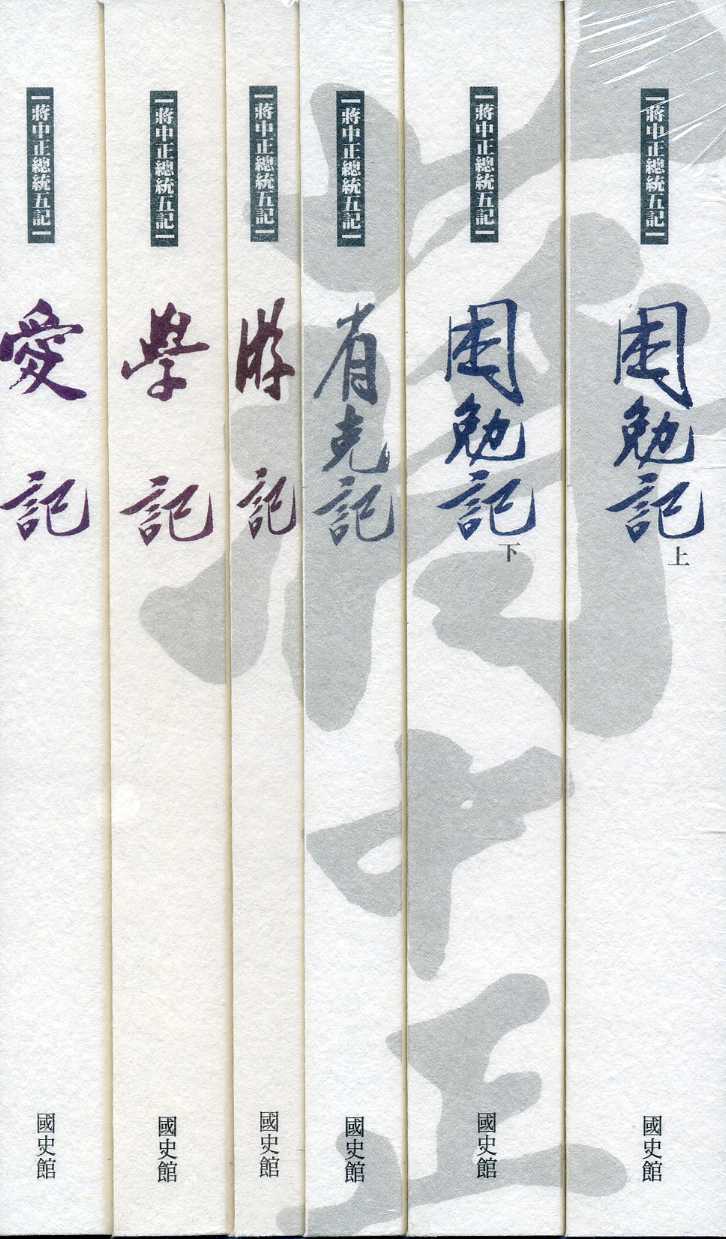 蔣中正總統五記
困勉記
上
國史館
蔣中正總統五記
困勉記
下
國史館
蔣中正總統五記
省克記
國史館
蔣中正總統五記
游記
國史館
蔣中正總統五記
學記
國史館
蔣中正總統五記
愛記
國史館
蔣中正